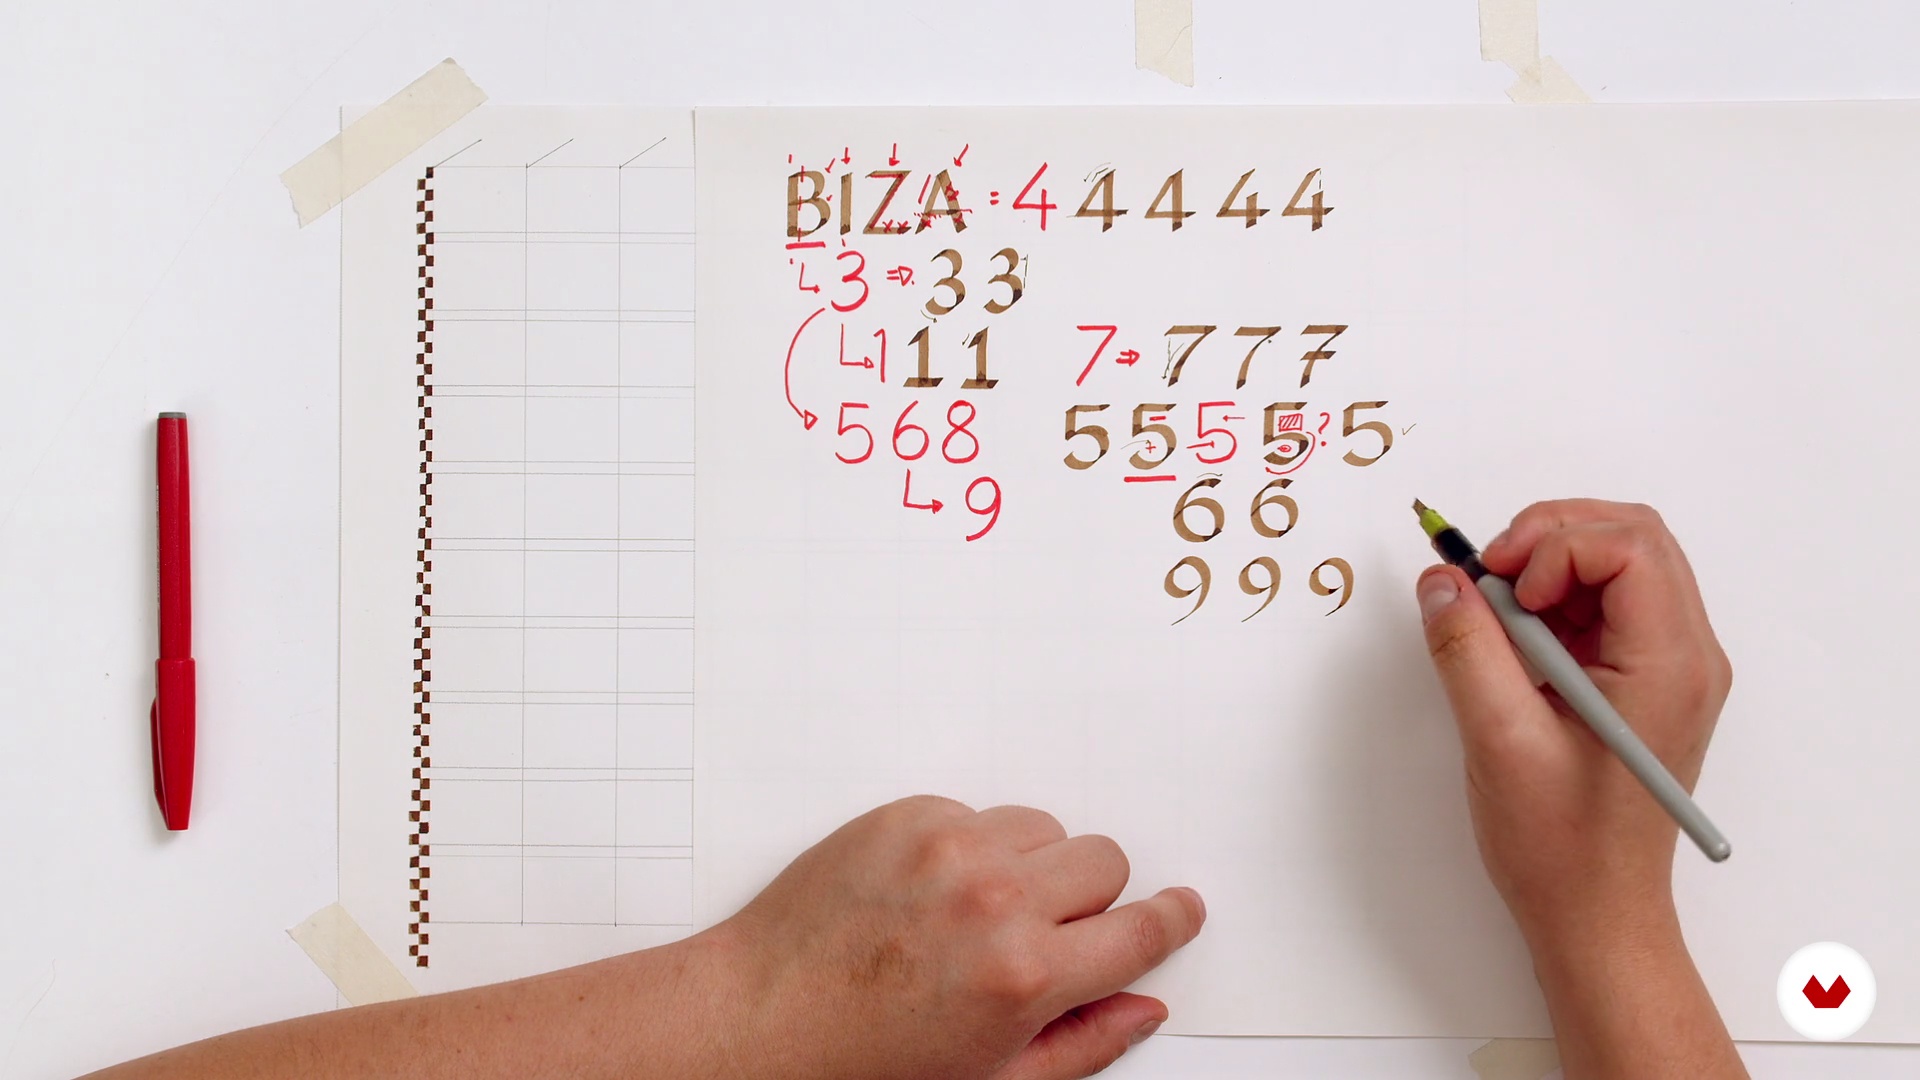 BIZA = 4 4 4 4 4
↳ 3 ⇒ 3 3
↳ 1 1 1 7 ⇒ 7 7 7
5 6 8 5 5 5 5 ? 5 ✓
↳ 9 6 6
9 9 9